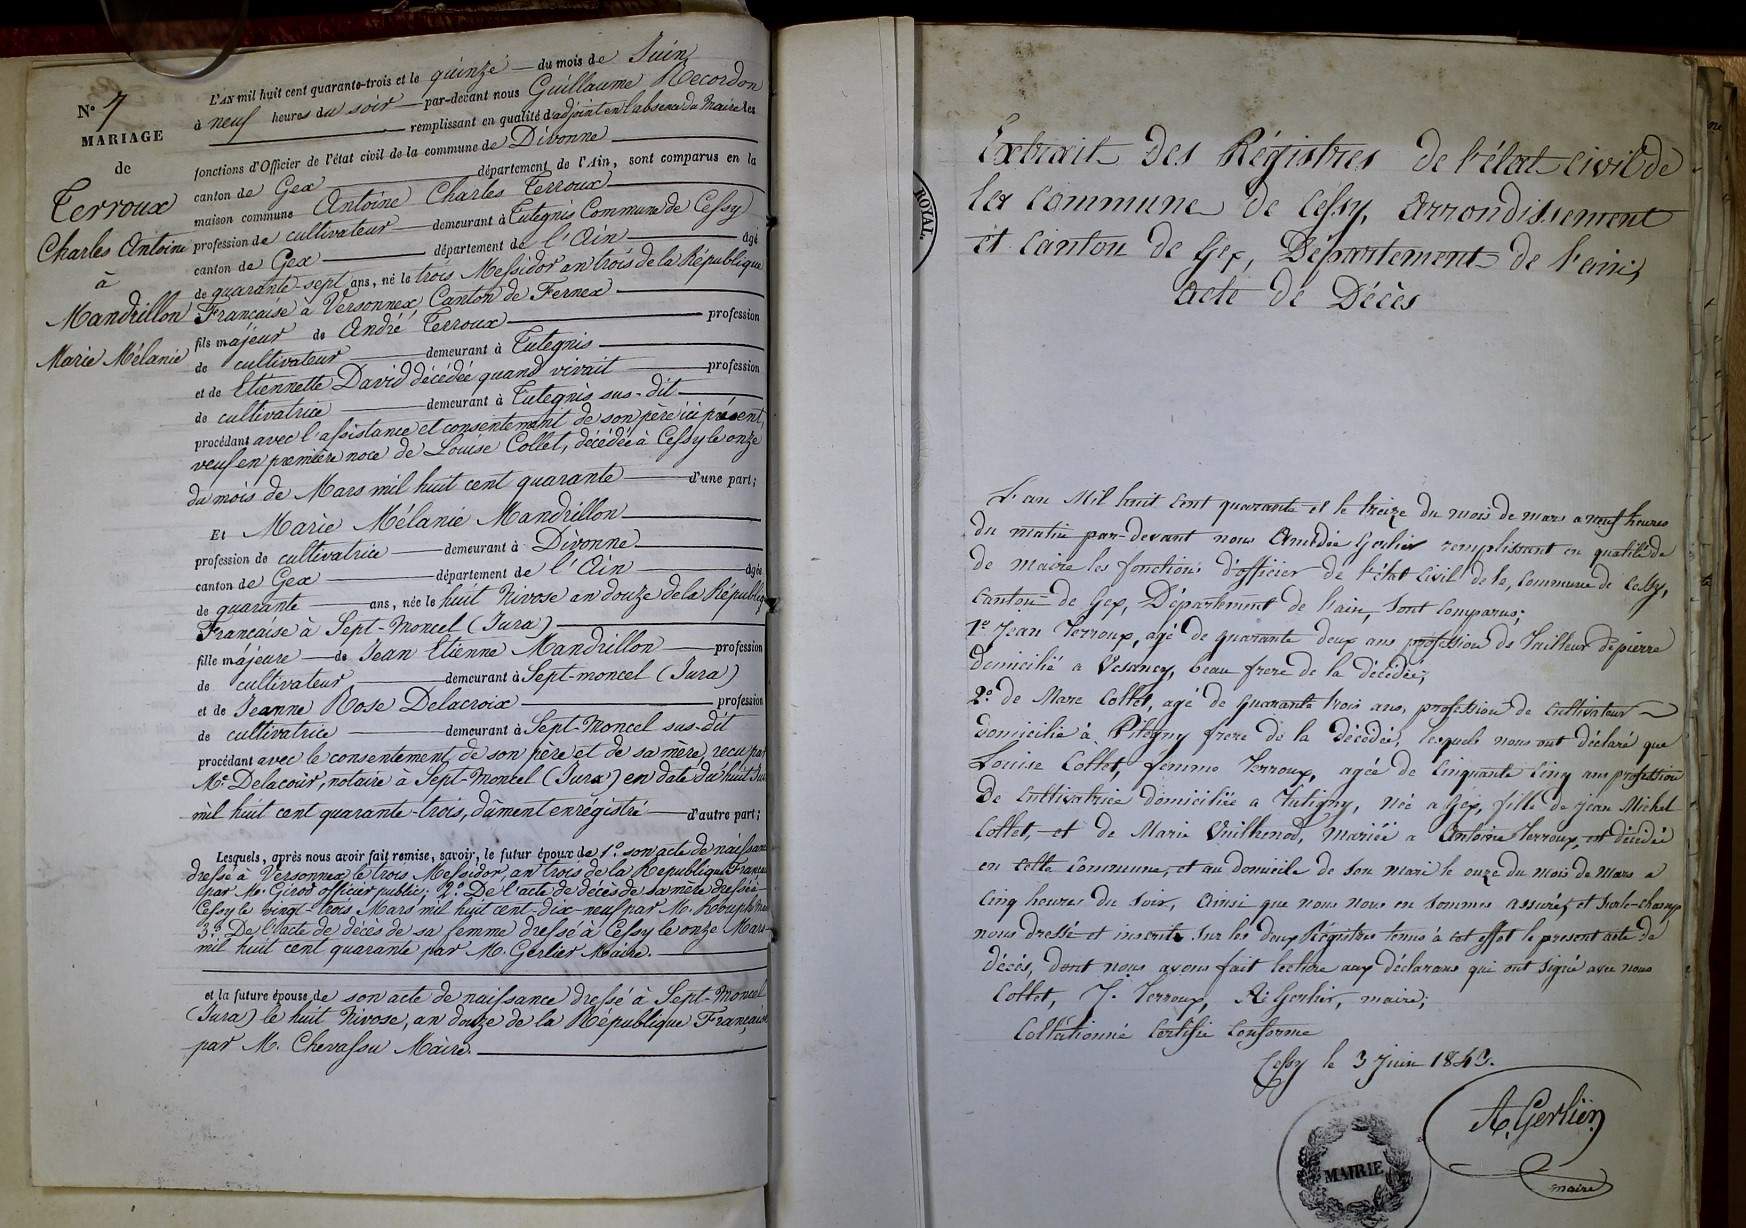 N° 7
MARIAGE
de
Terroux
Charles Antoine
à
Mandrillon
Marie Mélanie
L'AN mil huit cent quarante-trois et le quinze du mois de Juin
à neuf heures du soir par-devant nous Guillaume Recordon
remplissant en qualité d'adjoint en l'absence du Maire les
fonctions d'Officier de l'état civil de la commune de Divonne
canton de Gex département de l'Ain, sont comparus en la
maison commune Antoine Charles Terroux
profession de cultivateur demeurant à Tutegnis Commune de Cessy
canton de Gex département de l'Ain âgé
de quarante-sept ans, né le trois Messidor an trois de la République
Française à Versonnex, Canton de Fernex
fils majeur de André Terroux profession
de cultivateur demeurant à Tutegnis
et de Etiennette David décédée quand vivait profession
de cultivatrice demeurant à Tutegnis sus-dit
procédant avec l'assistance et consentement de son père ici présent,
veuf en première noce de Louise Collet, décédée à Cessy le onze
du mois de Mars mil huit cent quarante d'une part;
Et Marie Mélanie Mandrillon
profession de cultivatrice demeurant à Divonne
canton de Gex département de l'Ain âgée
de quarante ans, née le huit Nivose an douze de la Républiq
Française à Sept-Moncel (Jura)
fille majeure de Jean Etienne Mandrillon profession
de cultivateur demeurant à Sept-moncel (Jura)
et de Jeanne Rose Delacroix profession
de cultivatrice demeurant à Sept-Moncel sus-dit
procédant avec le consentement de son père et de sa mère, reçu par
Me. Delacour, notaire à Sept-Moncel (Jura) en date du huit Jui
mil huit cent quarante-trois, dûment enrégistré d'autre part;
Lesquels, après nous avoir fait remise, savoir, le futur époux de 1° son acte de naissan
dressé à Versonnex le trois Messidor, an trois de la République França
par Mr. Girod officier public; 2° De l'acte de décès de sa mère dressé à
Cessy le vingt-trois Mars mil huit cent-dix-neuf par M.
3° De l'acte de décès de sa femme dressé à Cessy le onze Mars
mil huit cent quarante par M. Gerlier Maire.
et la future épouse de son acte de naissance dressé à Sept-Moncel
(Jura) le huit Nivose, an douze de la République Français
par M. Chevassu Maire.
ROYAL.
Extrait des Régistres de l'état civil de
la commune de Cessy, arrondissement
et canton de Gex, Département de l'ain,
acte de Décès
L'an Mil huit cent quarante et le treize du mois de mars a neuf heures
du matin par-devant nous Amédée Gerlier remplissant en qualité de
de maire les fonctions d'officier de l'état civil de la, Commune de Cessy,
canton de Gex, Département de l'ain, sont comparus;
1° Jean Terroux, agé de quarante deux ans profession de Tailleur de pierre
domicilié a Vesancy, beau frere de la décédée;
2° de Marc Collet, agé de quarante trois ans, profession de cultivateur
domicilié à Pitegny frere de la décédée, lesquels nous ont déclaré que
Louise Collet, femme Terroux, agée de cinquante cinq ans profession
de cultivatrice domiciliée a Tutigny, née a Gex, fille de jean Michel
Collet, et de Marie Vuilhenod, mariée a Antoine Terroux, est décédée
en cette commune, et au domicile de son mari le onze du mois de mars a
cinq heures du soir, ainsi que nous nous en sommes assurés, et sur-le-champ
nous dressé et inscrit sur les deux Régistres tenus à cet effet le present acte de
décès, dont nous avons fait lecture aux déclarans qui ont signé avec nous
Collet, J. Terroux, A. Gerlier, maire;
Collationné certifié conforme
Cessy le 3 Juin 1843.
A. Gerlier
maire
MAIRIE